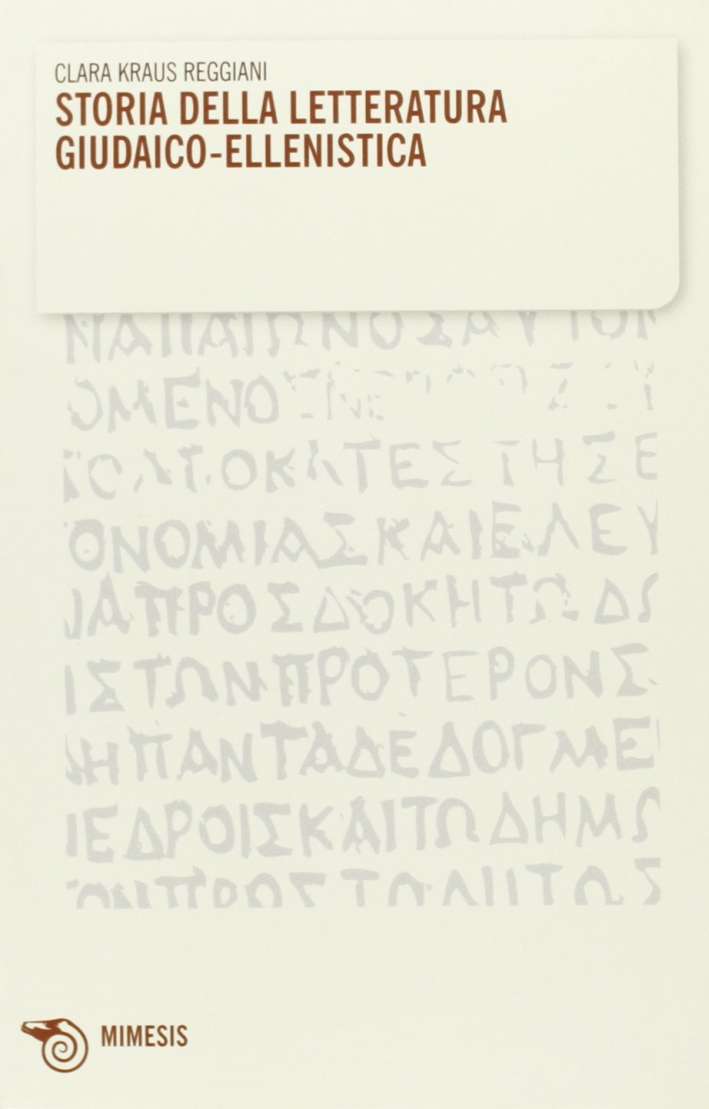 CLARA KRAUS REGGIANI
STORIA DELLA LETTERATURA
GIUDAICO-ELLENISTICA
ΩΜΕΝΟ
ΤΕΣΤΗΣΕ
ΟΝΟΜΙΑΣΚΑΙΕΛΕΥ
ΑΠΡΟΣΔΟΚΗΤΩΔΩ
ΙΣΤΩΝΠΡΟΤΕΡΟΝΣ
ΔΗΠΑΝΤΑΔΕΔΟΓΜΕ
ΙΕΔΡΟΙΣΚΑΙΤΩΔΗΜΩ
MIMESIS